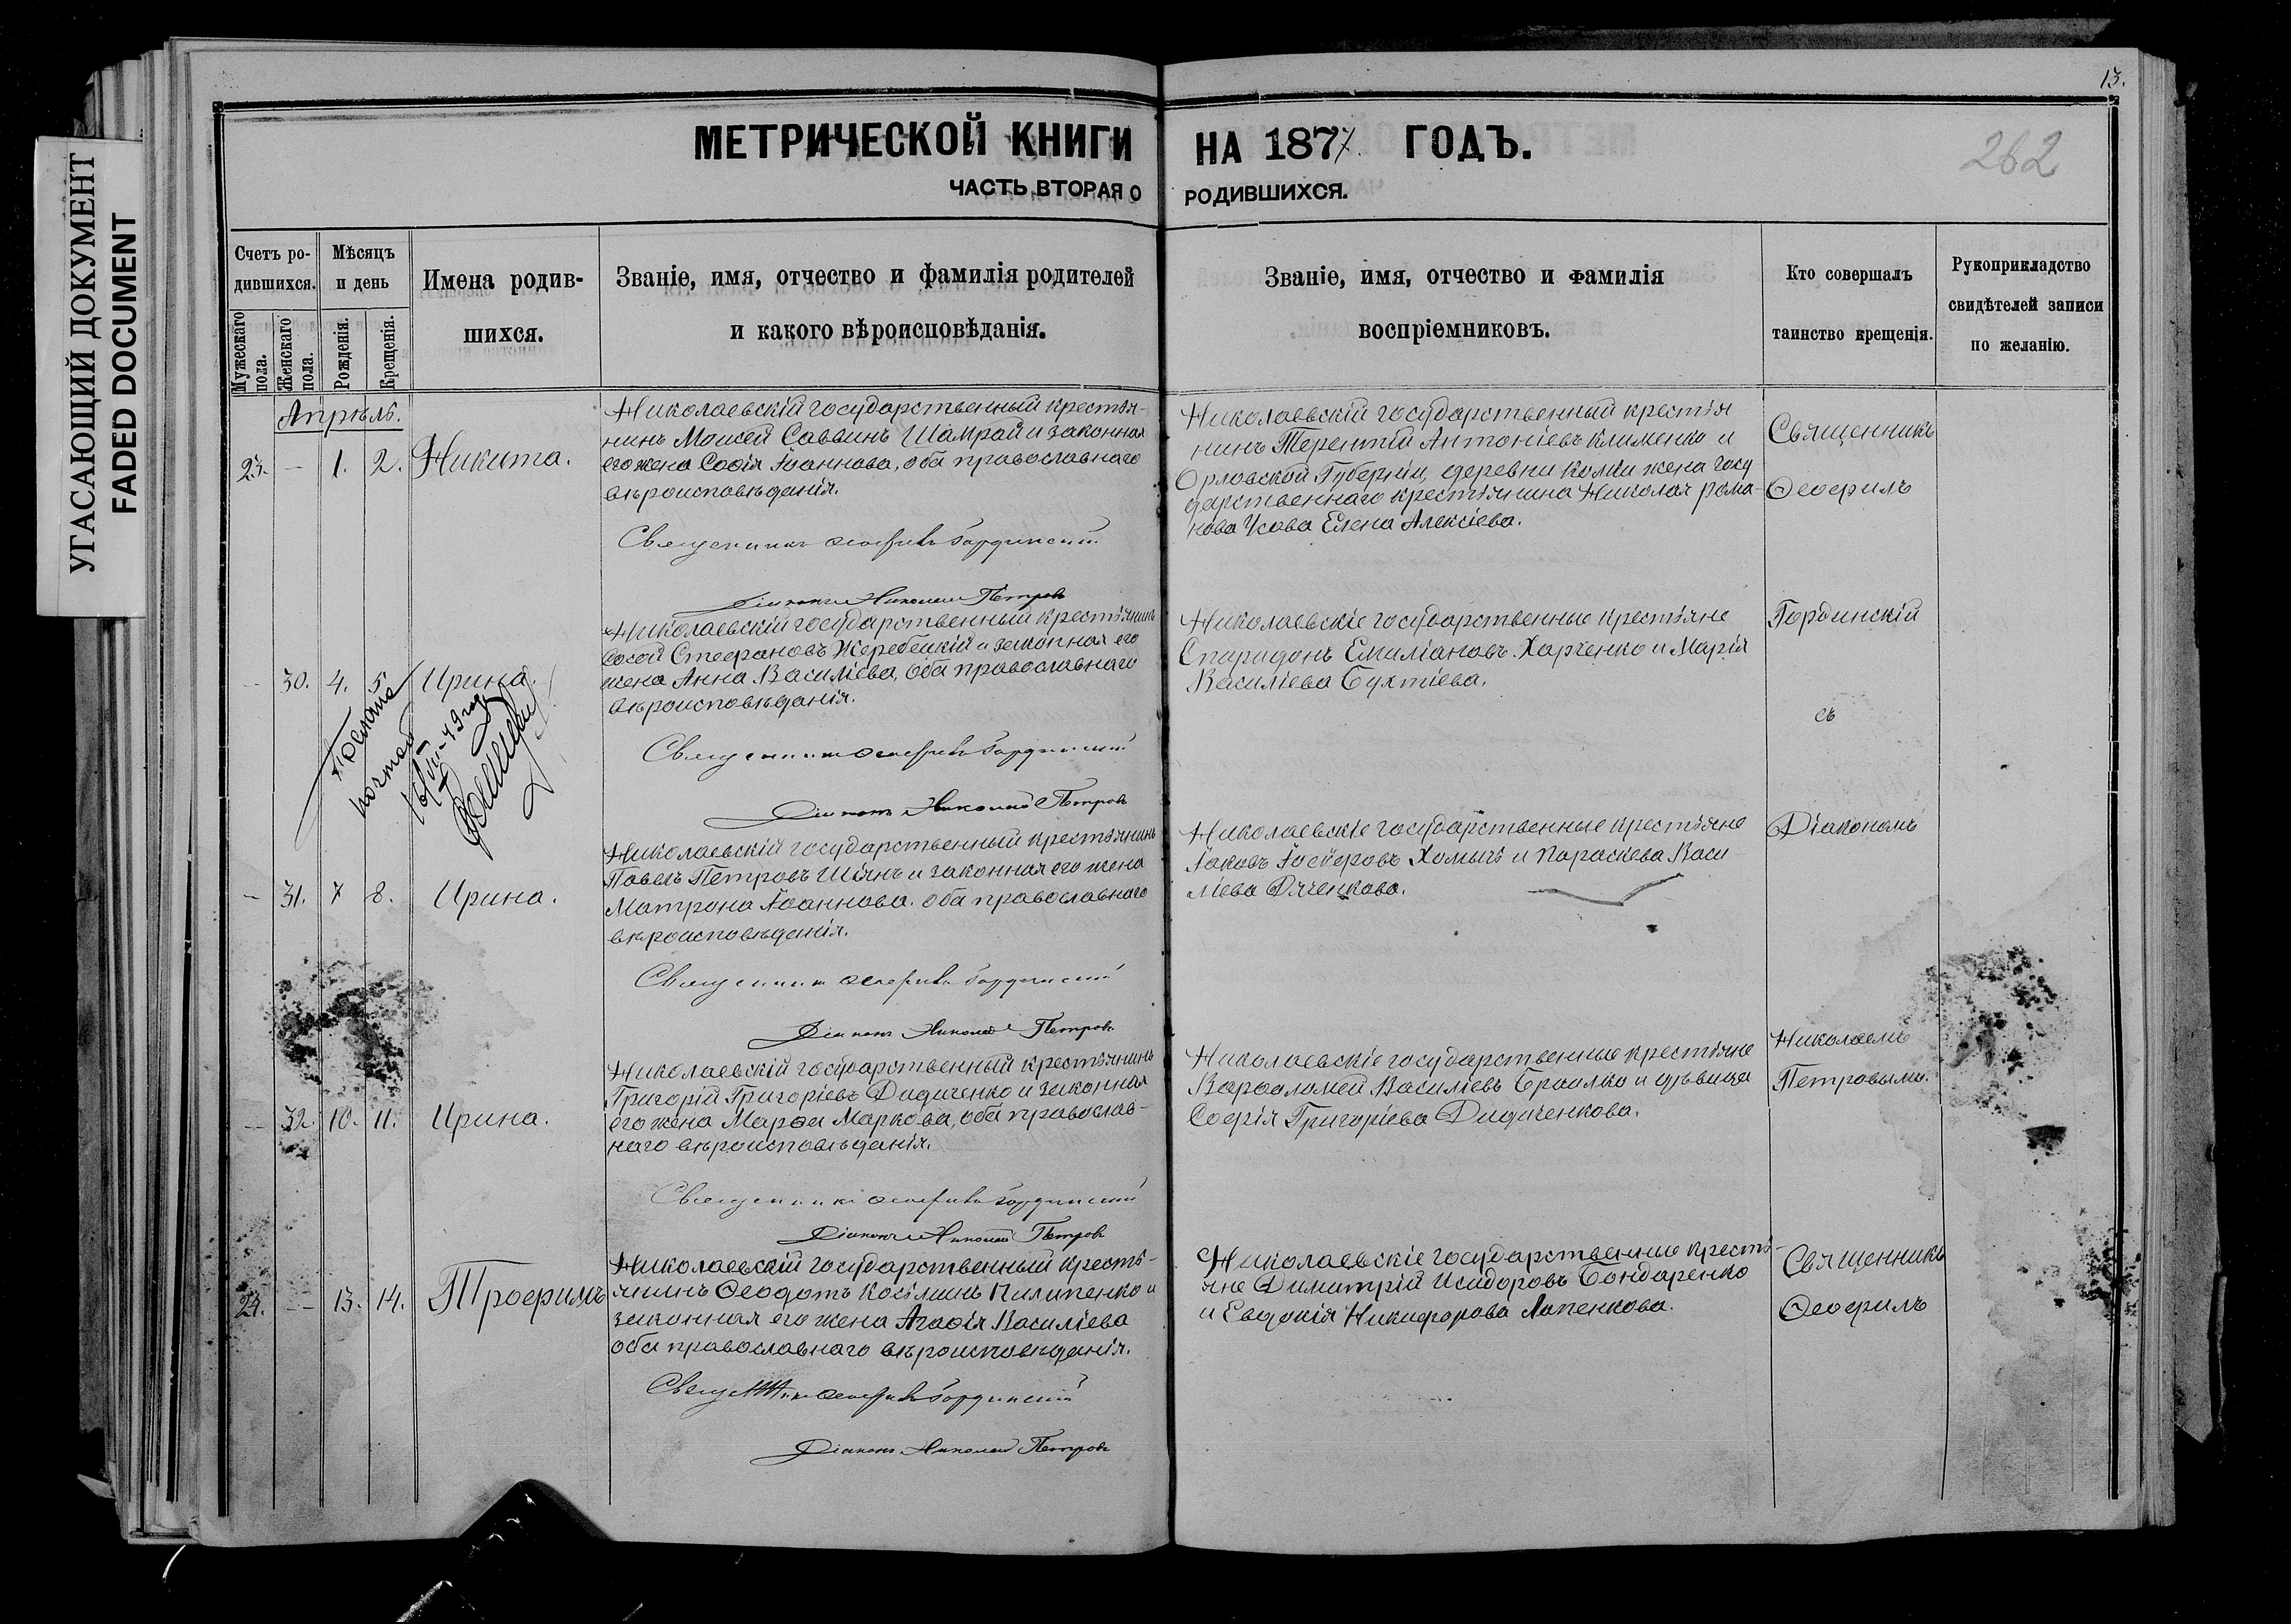 УГАСАЮЩИЙ ДОКУМЕНТ
FADED DOCUMENT
13.
262
МЕТРИЧЕСКОЙ КНИГИ НА 1877. ГОДЪ.
ЧАСТЬ ВТОРАЯ О РОДИВШИХСЯ.
Счетъ ро-
дившихся.
Мужескаго
пола.
Женскаго
пола.
Мѣсяцъ
и день
Рожденія.
Крещенія.
Имена родив-
шихся.
Званіе, имя, отчество и фамилія родителей
и какого вѣроисповѣданія.
Званіе, имя, отчество и фамилія
воспріемниковъ.
Кто совершалъ
таинство крещенія.
Рукоприкладство
свидѣтелей записи
по желанію.
Апрѣль.
23. — 1. 2. Никита.
Николаевскій государственный крестья-
нинъ Моисей Саввинъ Шамрай и законная
его жена Софія Іоаннова, оба православнаго
вѣроисповѣданія.
Священникъ Ѳеофилъ Гординскій
Діаконъ Николай Петровъ
Николаевскій государственный крестья
нинъ Терентій Антоніевъ Клименко и
Орловской Губерніи, деревни жена госу
дарственнаго крестьянина Николая Рома-
нова Усова Елена Алексіева.
Священникъ
Ѳеофилъ
— 30. 4. 5. Ирина.
почтой
Николаевскій государственный крестьянинъ
Сосой Стефановъ Жеребецкій и законная его
жена Анна Василіева, оба православнаго
вѣроисповѣданія.
Священникъ Ѳеофилъ Гординскій
Діаконъ Николай Петровъ
Николаевскіе государственные крестьяне
Спиридонъ Емиліановъ Харченко и Марія
Василіева Бухтіева.
Гординскій
съ
— 31. 7 8. Ирина.
Николаевскій государственный крестьянинъ
Павелъ Петровъ Шіянъ и законная его жена
Матрона Іоаннова. оба православнаго
вѣроисповѣданія.
Священникъ Ѳеофилъ Гординскій
Діаконъ Николай Петровъ
Николаевскіе государственные крестьяне
Іаковъ Іосифовъ Хомичъ и Параскева Васи-
ліева Дяченкова.
Діакономъ
— 32. 10. 11. Ирина.
Николаевскій государственный крестьянинъ
Григорій Григоріевъ Дидиченко и законная
его жена Марѳа Маркова, оба православ-
наго вѣроисповѣданія.
Священникъ Ѳеофилъ Гординскій
Діаконъ Николай Петровъ
Николаевскіе государственные крестьяне
Варѳоломей Василіевъ Браилко и дѣвица
Софія Григоріева Дидиченкова.
Николаемъ
Петровымъ.
24. — 13. 14. Трофимъ
Николаевскій государственный кресть-
янинъ Ѳеодотъ Косьминъ Пилипенко и
законная его жена Агафія Василіева
оба православнаго вѣроисповѣданія.
Священникъ Ѳеофилъ Гординскій
Діаконъ Николай Петровъ
Николаевскіе государственные кресть-
яне Димитрій Исидоровъ Бондаренко
и Евдокія Никифорова Лапенкова.
Священникъ
Ѳеофилъ